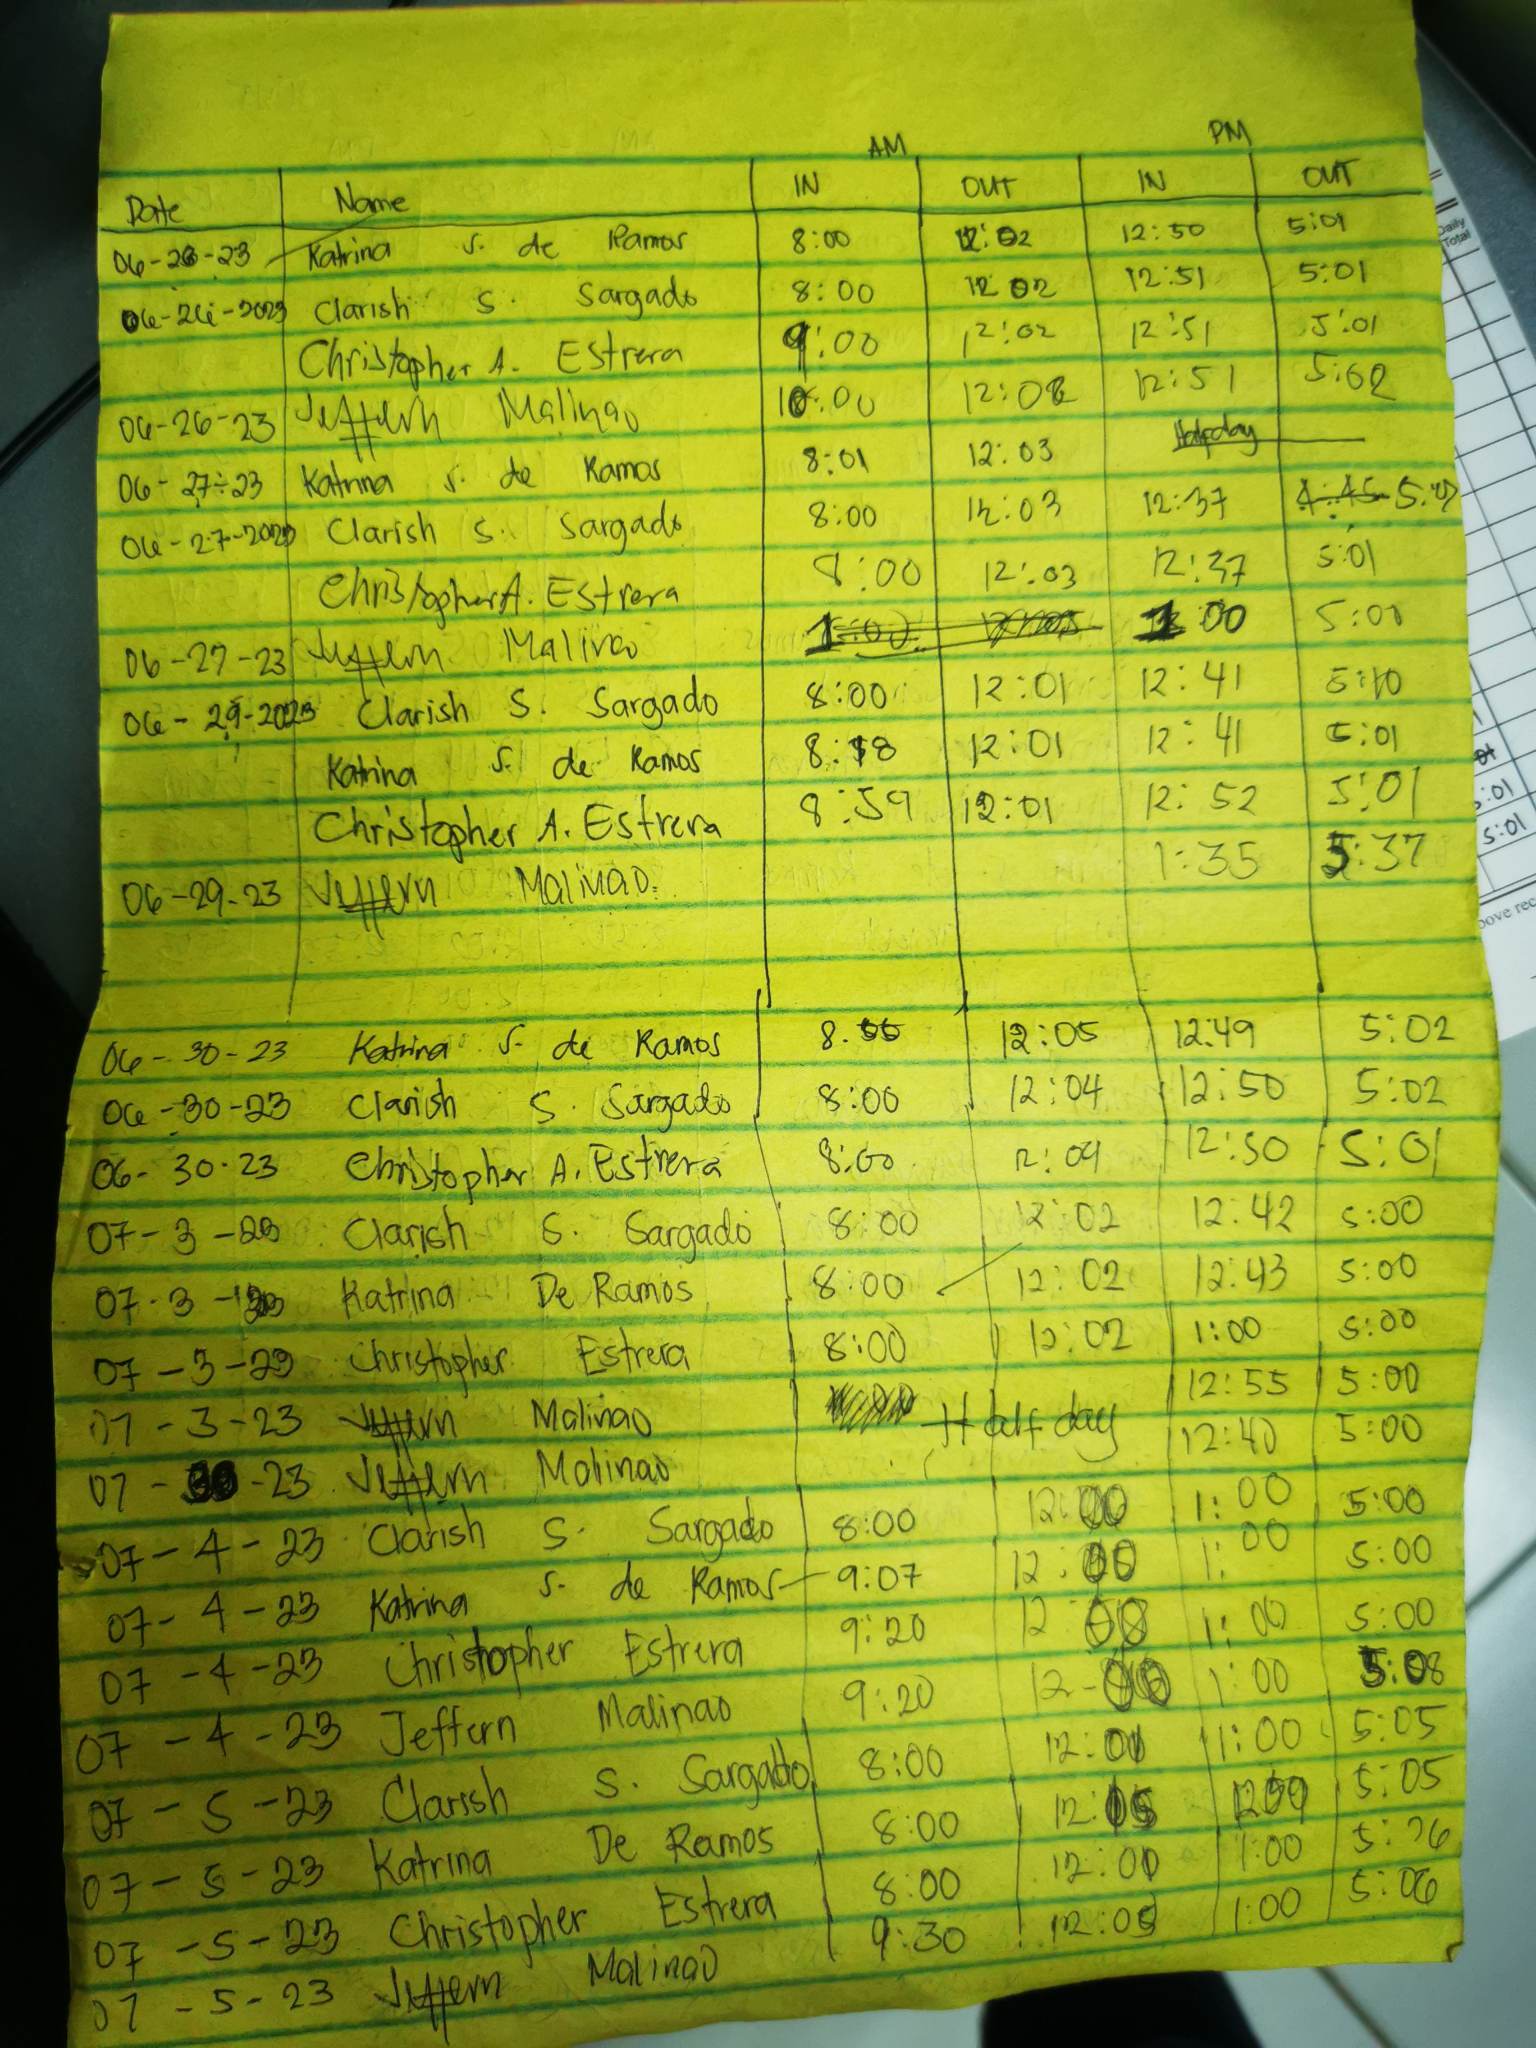 AM PM
Date Name IN OUT IN OUT
06-26-23 Katrina S. de Ramos 8:00 12:02 12:50 5:01
06-26-2023 Clarish S. Sargado 8:00 12 02 12:51 5:01
Christopher A. Estrera 9:00 12:02 12:51 5:01
06-26-23 Jeffern Malinao 10:00 12:02 12:51 5:02
06-27-23 Katrina S. de Ramos 8:01 12:03 Halfday
06-27-2023 Clarish S. Sargado 8:00 12:03 12:37 4:45
Christopher A. Estrera 8:00 12:03 12:37 5:01
06-27-23 Jeffern Malinao 1:00 5:00
06-29-2023 Clarish S. Sargado 8:00 12:01 12:41 5:10
Katrina S. de Ramos 8:18 12:01 12:41 5:01
Christopher A. Estrera 8:59 12:01 12:52 5:01
06-29-23 Jeffern Malinao 1:35 5:37
06-30-23 Katrina S. de Ramos 8:55 12:05 12:49 5:02
06-30-23 Clarish S. Sargado 8:00 12:04 12:50 5:02
06-30-23 Christopher A. Estrera 8:00 12:04 12:50 5:01
07-3-23 Clarish S. Sargado 8:00 12:02 12:42 5:00
07-3- Katrina De Ramos 8:00 12:02 12:43 5:00
07-3-23 Christopher Estrera 8:00 12:02 1:00 5:00
07-3-23 Jeffern Malinao Half day 12:55 5:00
07- -23 Jeffern Malinao 12:40 5:00
07-4-23 Clarish S. Sargado 8:00 12:00 1:00 5:00
07-4-23 Katrina S. de Ramos 9:07 12:00 1:00 5:00
07-4-23 Christopher Estrera 9:20 12: 1:00 5:00
07-4-23 Jeffern Malinao 9:20 12- 1:00 5:08
07-5-23 Clarish S. Sargado 8:00 12:01 1:00 5:05
07-5-23 Katrina De Ramos 8:00 12:05 5:05
07-5-23 Christopher Estrera 8:00 12:01 1:00
07-5-23 Jeffern Malinao 9:30 12:05 1:00 5:06
Daily
Total
5:01
5:01